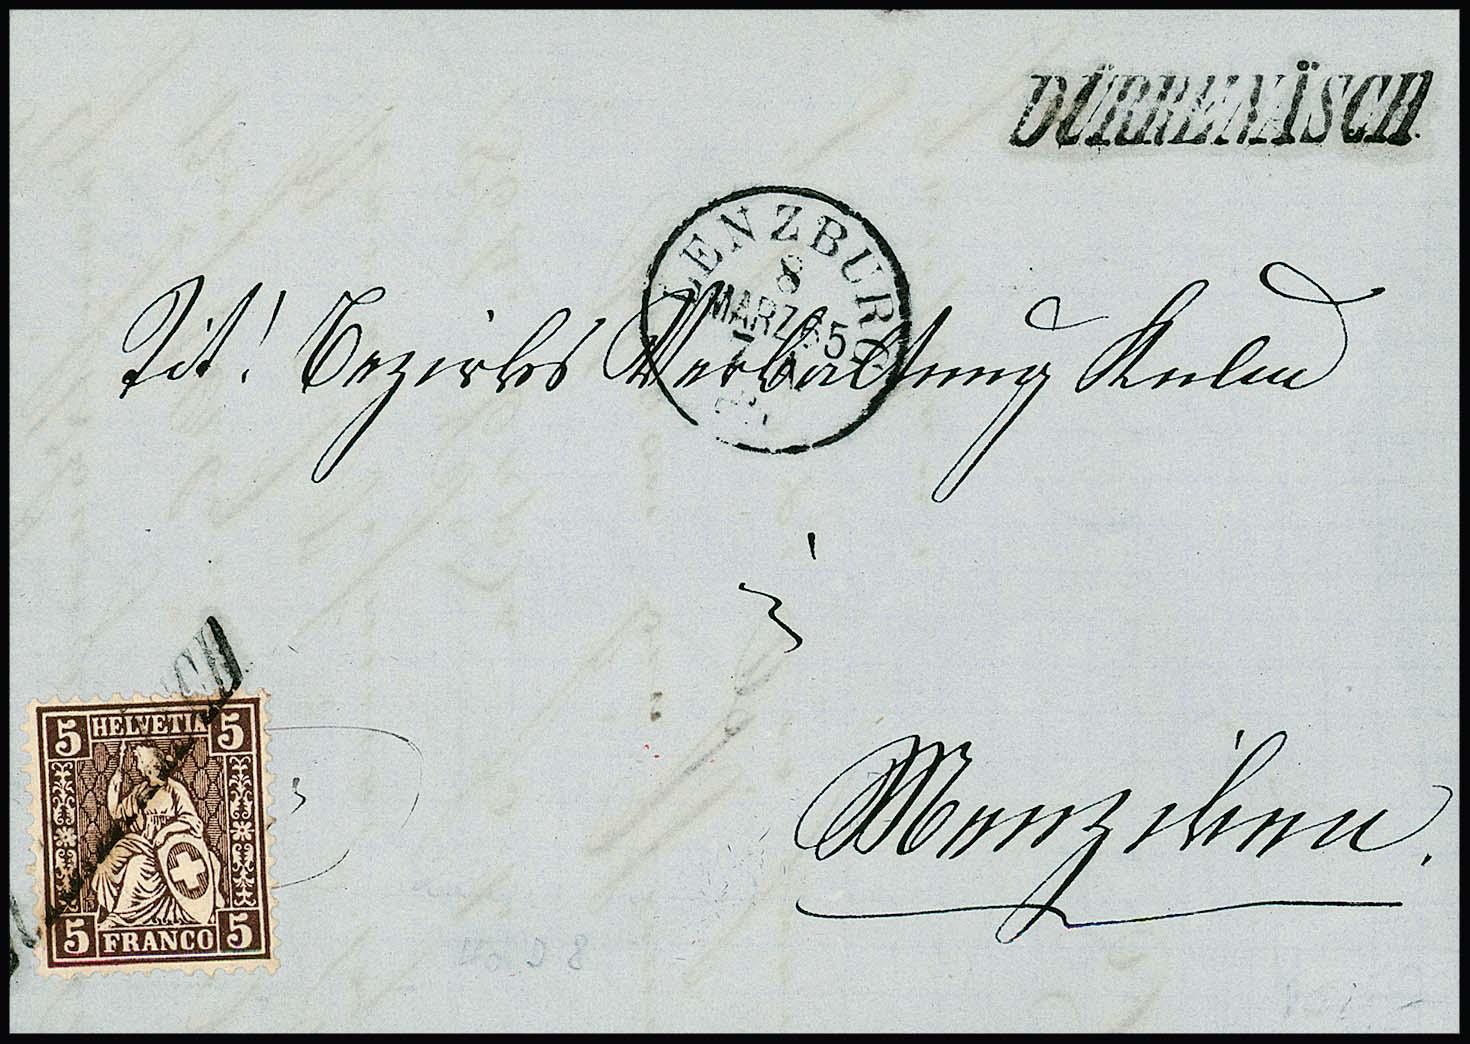 DÜRRENÄSCH.
LENZBURG
8
MÄRZ 65
Tit! Bezirks Verwaltung Kulm
in
Menziken.
5 HELVETIA 5
5 FRANCO 5